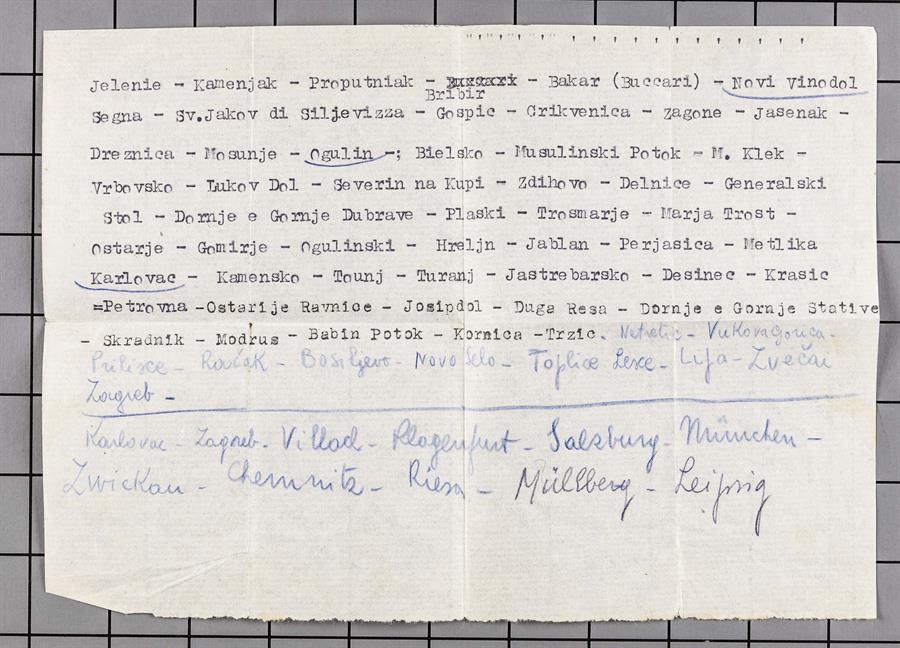 Jelenie - Kamenjak - Proputniak - Buxxari - Bakar (Buccari) - Novi Vinodol
Bribir
Segna - Sv.Jakov di Siljevizza - Gospic - Crikvenica - Zagone - Jasenak -
Dreznica - Mosunje - Ogulin -; Bielsko - Musulinski Potok - M. Klek -
Vrbovsko - Lukov Dol - Severin na Kupi - Zdihovo - Delnice - Generalski
Stol - Dornje e Gornje Dubrave - Plaski - Trosmarje - Marja Trost -
Ostarje - Gomirje - Ogulinski - Hreljn - Jablan - Perjasica - Metlika
Karlovac - Kamensko - Tounj - Turanj - Jastrebarsko - Desinec - Krasic
=Petrovna -Ostarije Ravnice - Josipdol - Duga Resa - Dornje e Gornje Stative
- Skradnik - Modrus - Babin Potok - Kornica -Trzic. Netretic - Vukovagorica -
Prilisce - Račak - Bosiljevo - Novo Selo - Toplice Lesce - Lipa - Zvečaj
Zagreb -
Karlovac - Zagreb - Villad - Klagenfurt - Salzburg - München -
Zwickau - Chemnitz - Riesa - Müllberg - Leipzig